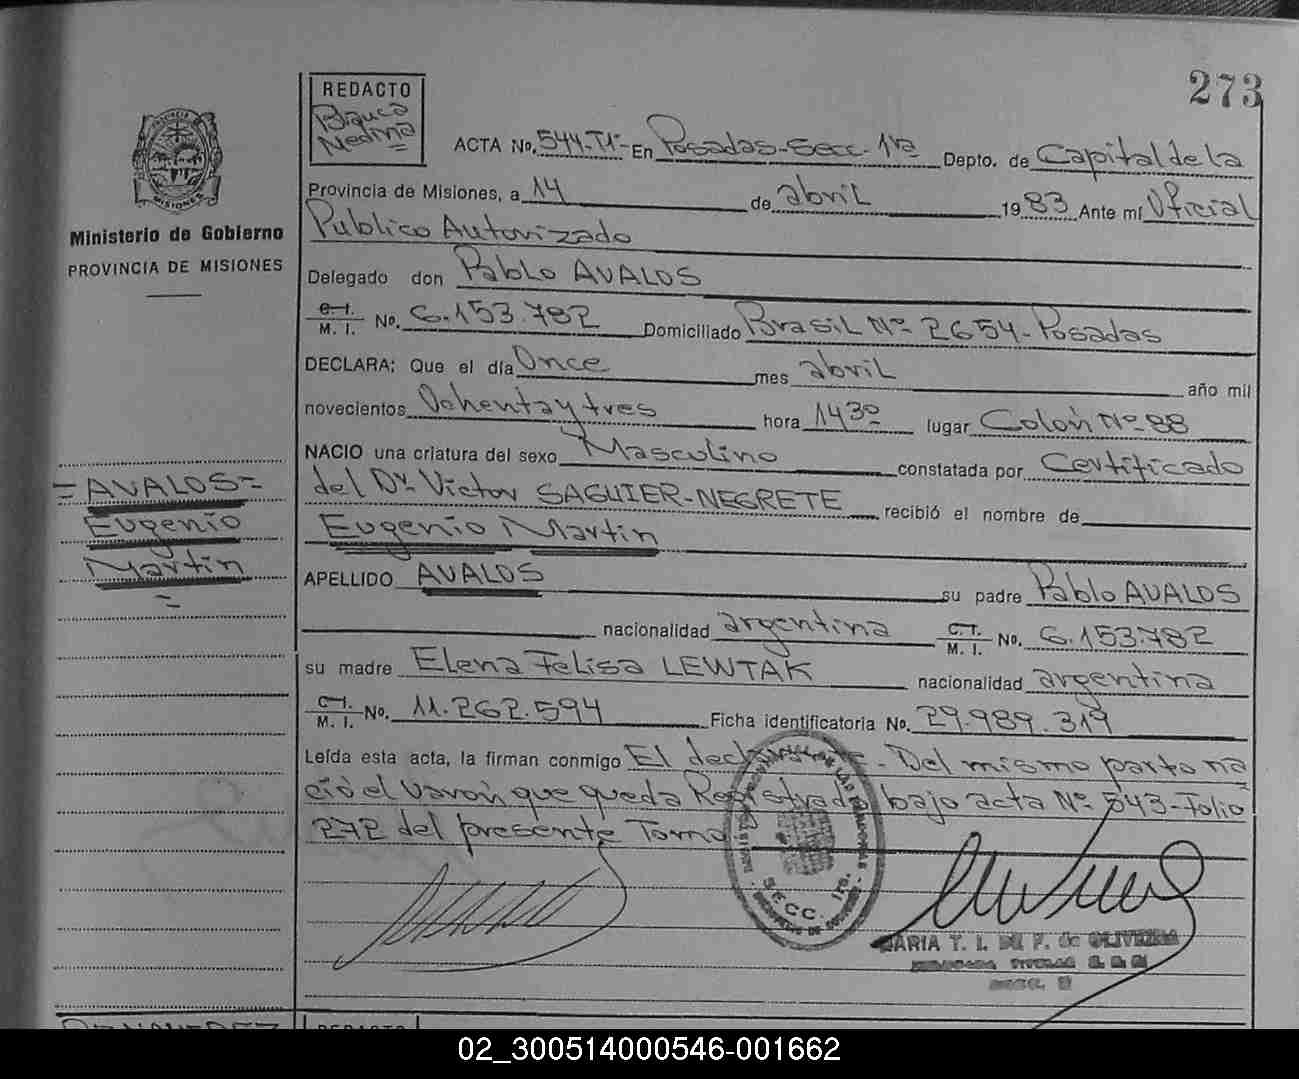 273
REDACTO
Blanca
Medina
ACTA No. 544-T1- En Posadas-Secc. 1ra Depto. de Capital de la
Provincia de Misiones, a 14 de abril 1983 Ante mí Oficial
Publico Autorizado
Delegado don Pablo AVALOS
C. I.
M. I. No. 6.153.782 Domiciliado Brasil Nº 2654-Posadas
DECLARA: Que el día Once mes abril año mil
novecientos Ochenta y tres hora 1430 lugar Colón Nº 88
NACIO una criatura del sexo Masculino constatada por Certificado
del Dr. Victor SAGUIER-NEGRETE recibió el nombre de
Eugenio Martin
APELLIDO AVALOS su padre Pablo AVALOS
nacionalidad argentina C. I.
M. I. No. 6.153.782
su madre Elena Felisa LEWTAK nacionalidad argentina
C. I.
M. I. No. 11.262.594 Ficha identificatoria No. 29.989.319
Leída esta acta, la firman conmigo El - Del mismo parto na
ció el varón que queda Registrado bajo acta Nº 543-Folio
272 del presente Tomo
Ministerio de Gobierno
PROVINCIA DE MISIONES
=AVALOS=
Eugenio
Martin
=
SECC. 1ra.
MARIA T. I. DE F. de OLIVEIRA
REDACTO
02_300514000546-001662